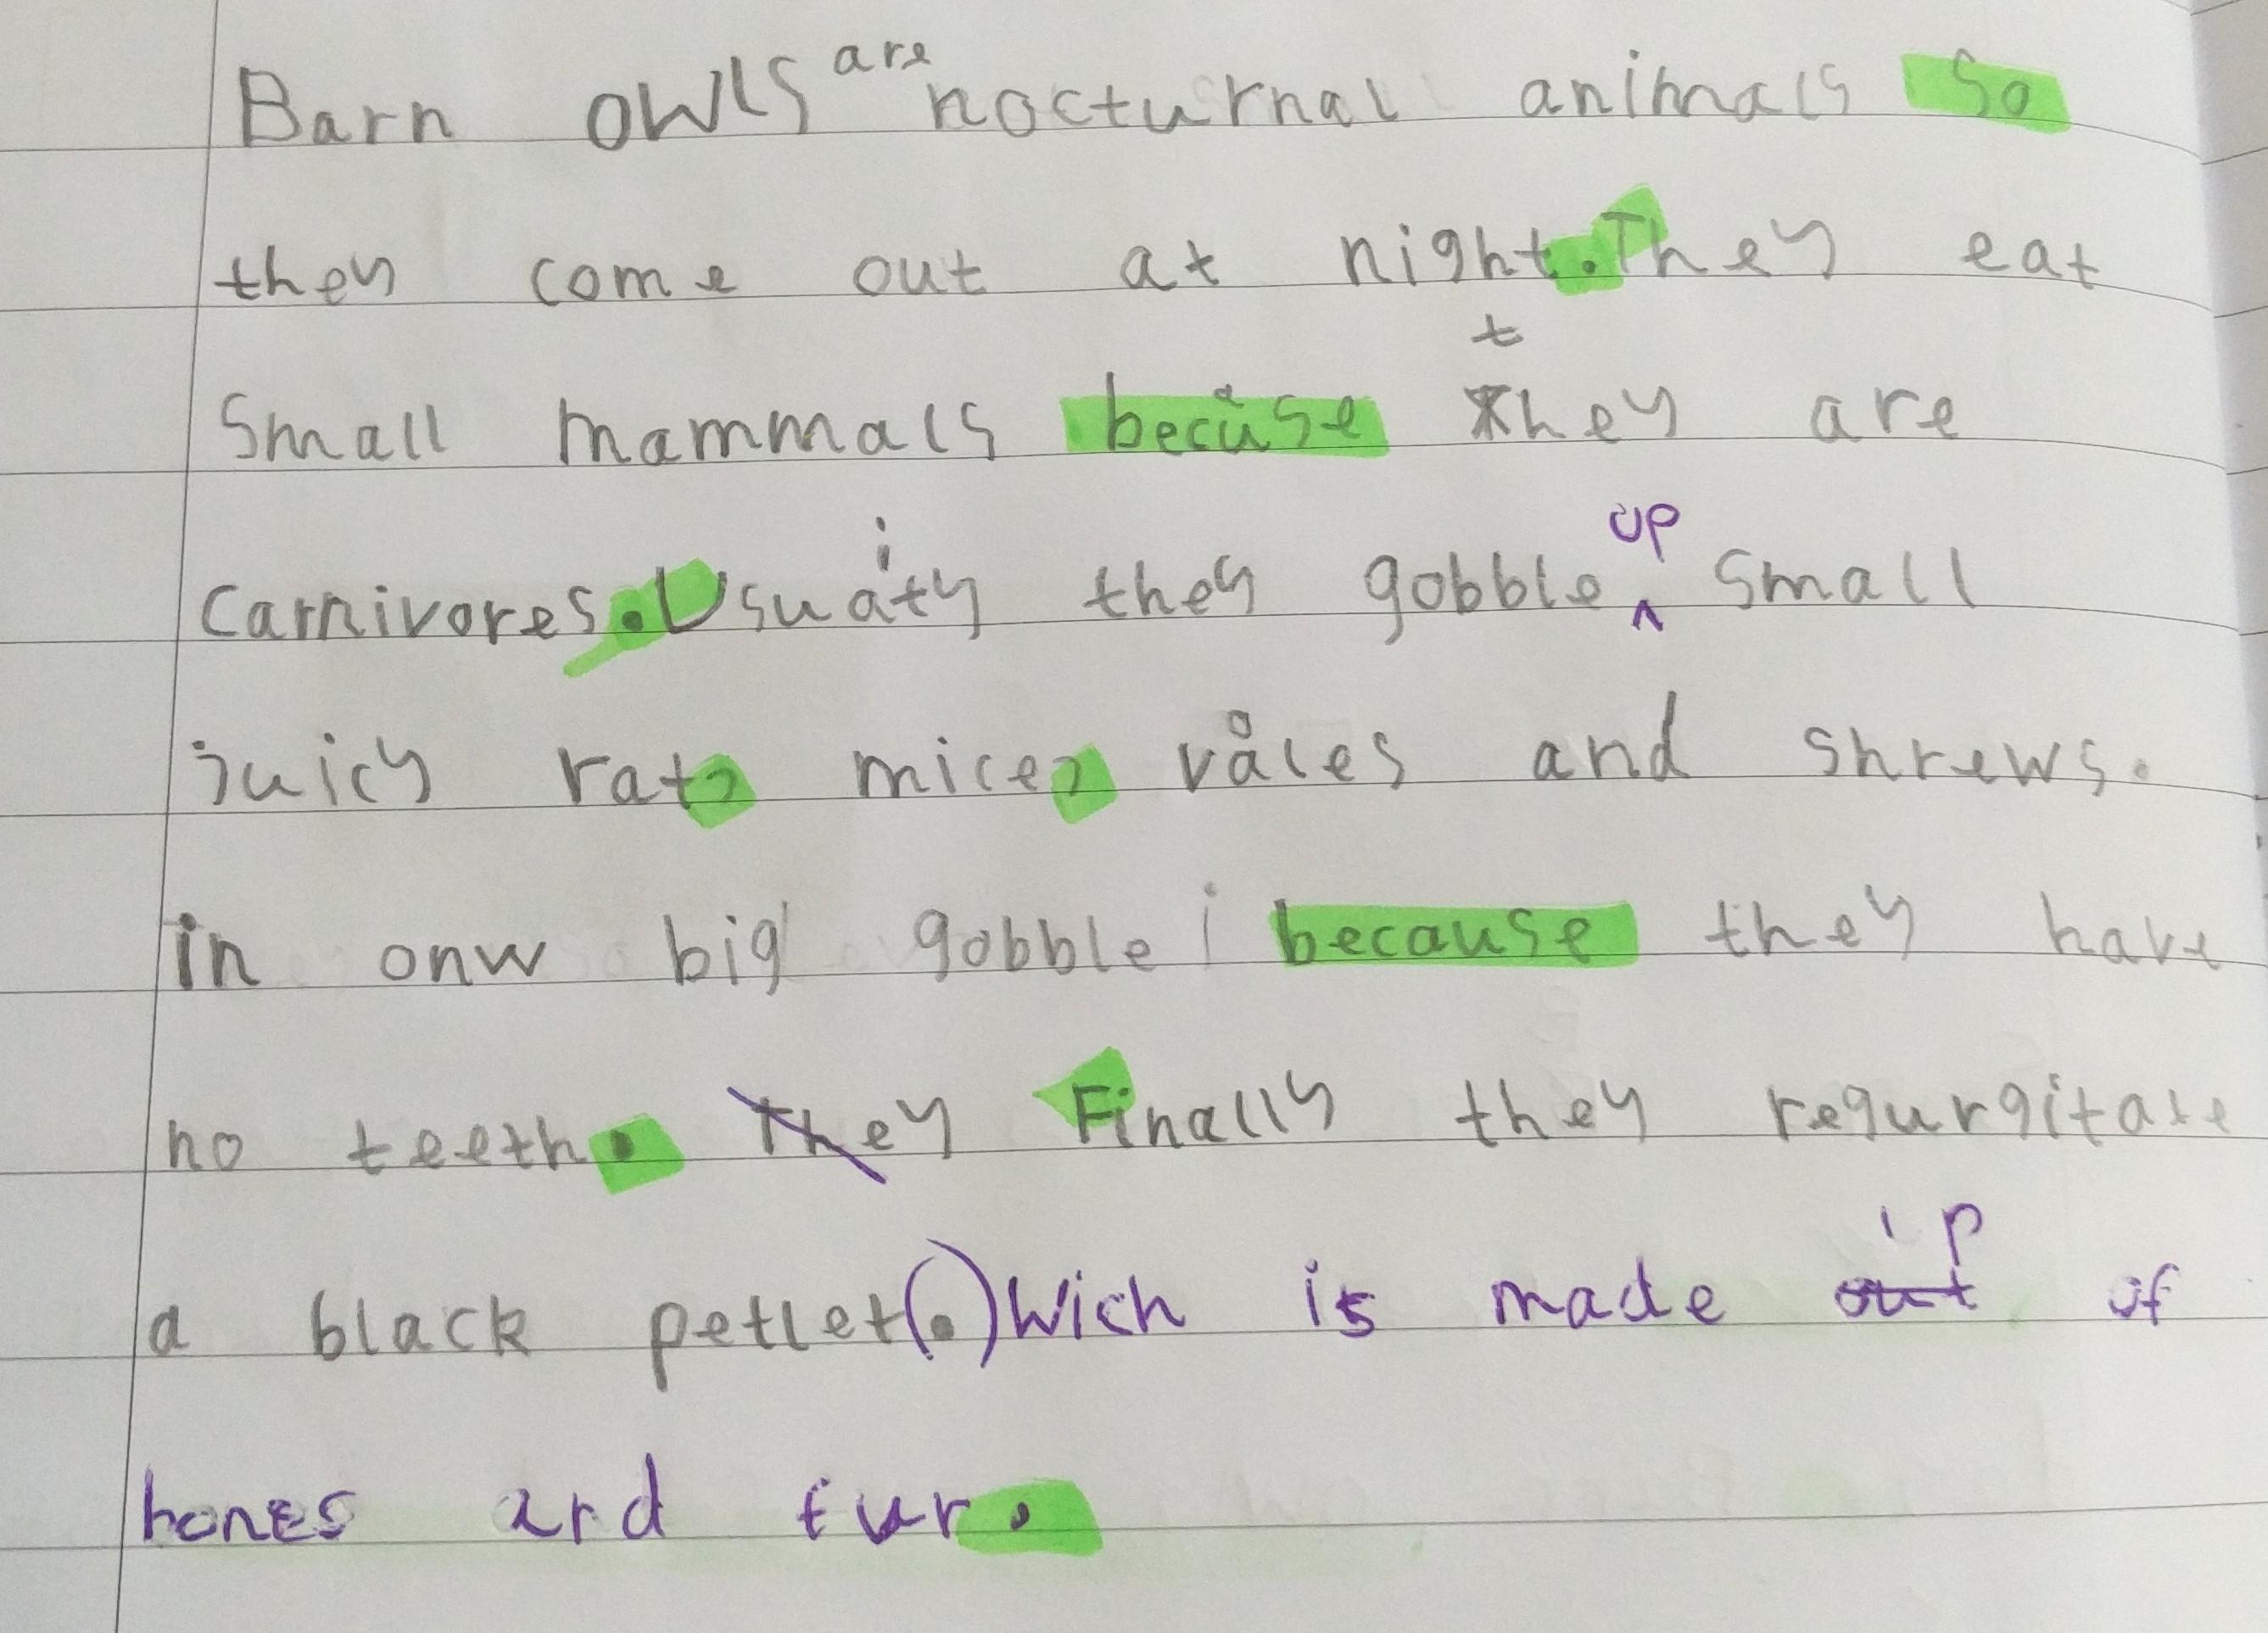 Barn owls are nocturnal animals so
they come out at night. They eat
small mammals because they are
carnivores. Usuaity they gobble up small
juicy rat, mice, voles and shrews.
in onw big gobble i because they have
no teeth. They Finally they regurgitate
a black petlet(.) Wich is made out up of
bones and fur.